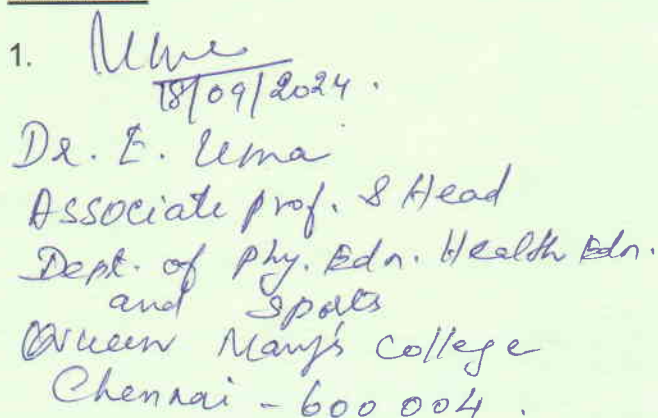 1. Uma
18/09/2024.
Dr. E. Uma
Associate prof. & Head
Dept. of Phy. Edn. Health Edn.
and Sports
Queen Mary's College
Chennai - 600 004.